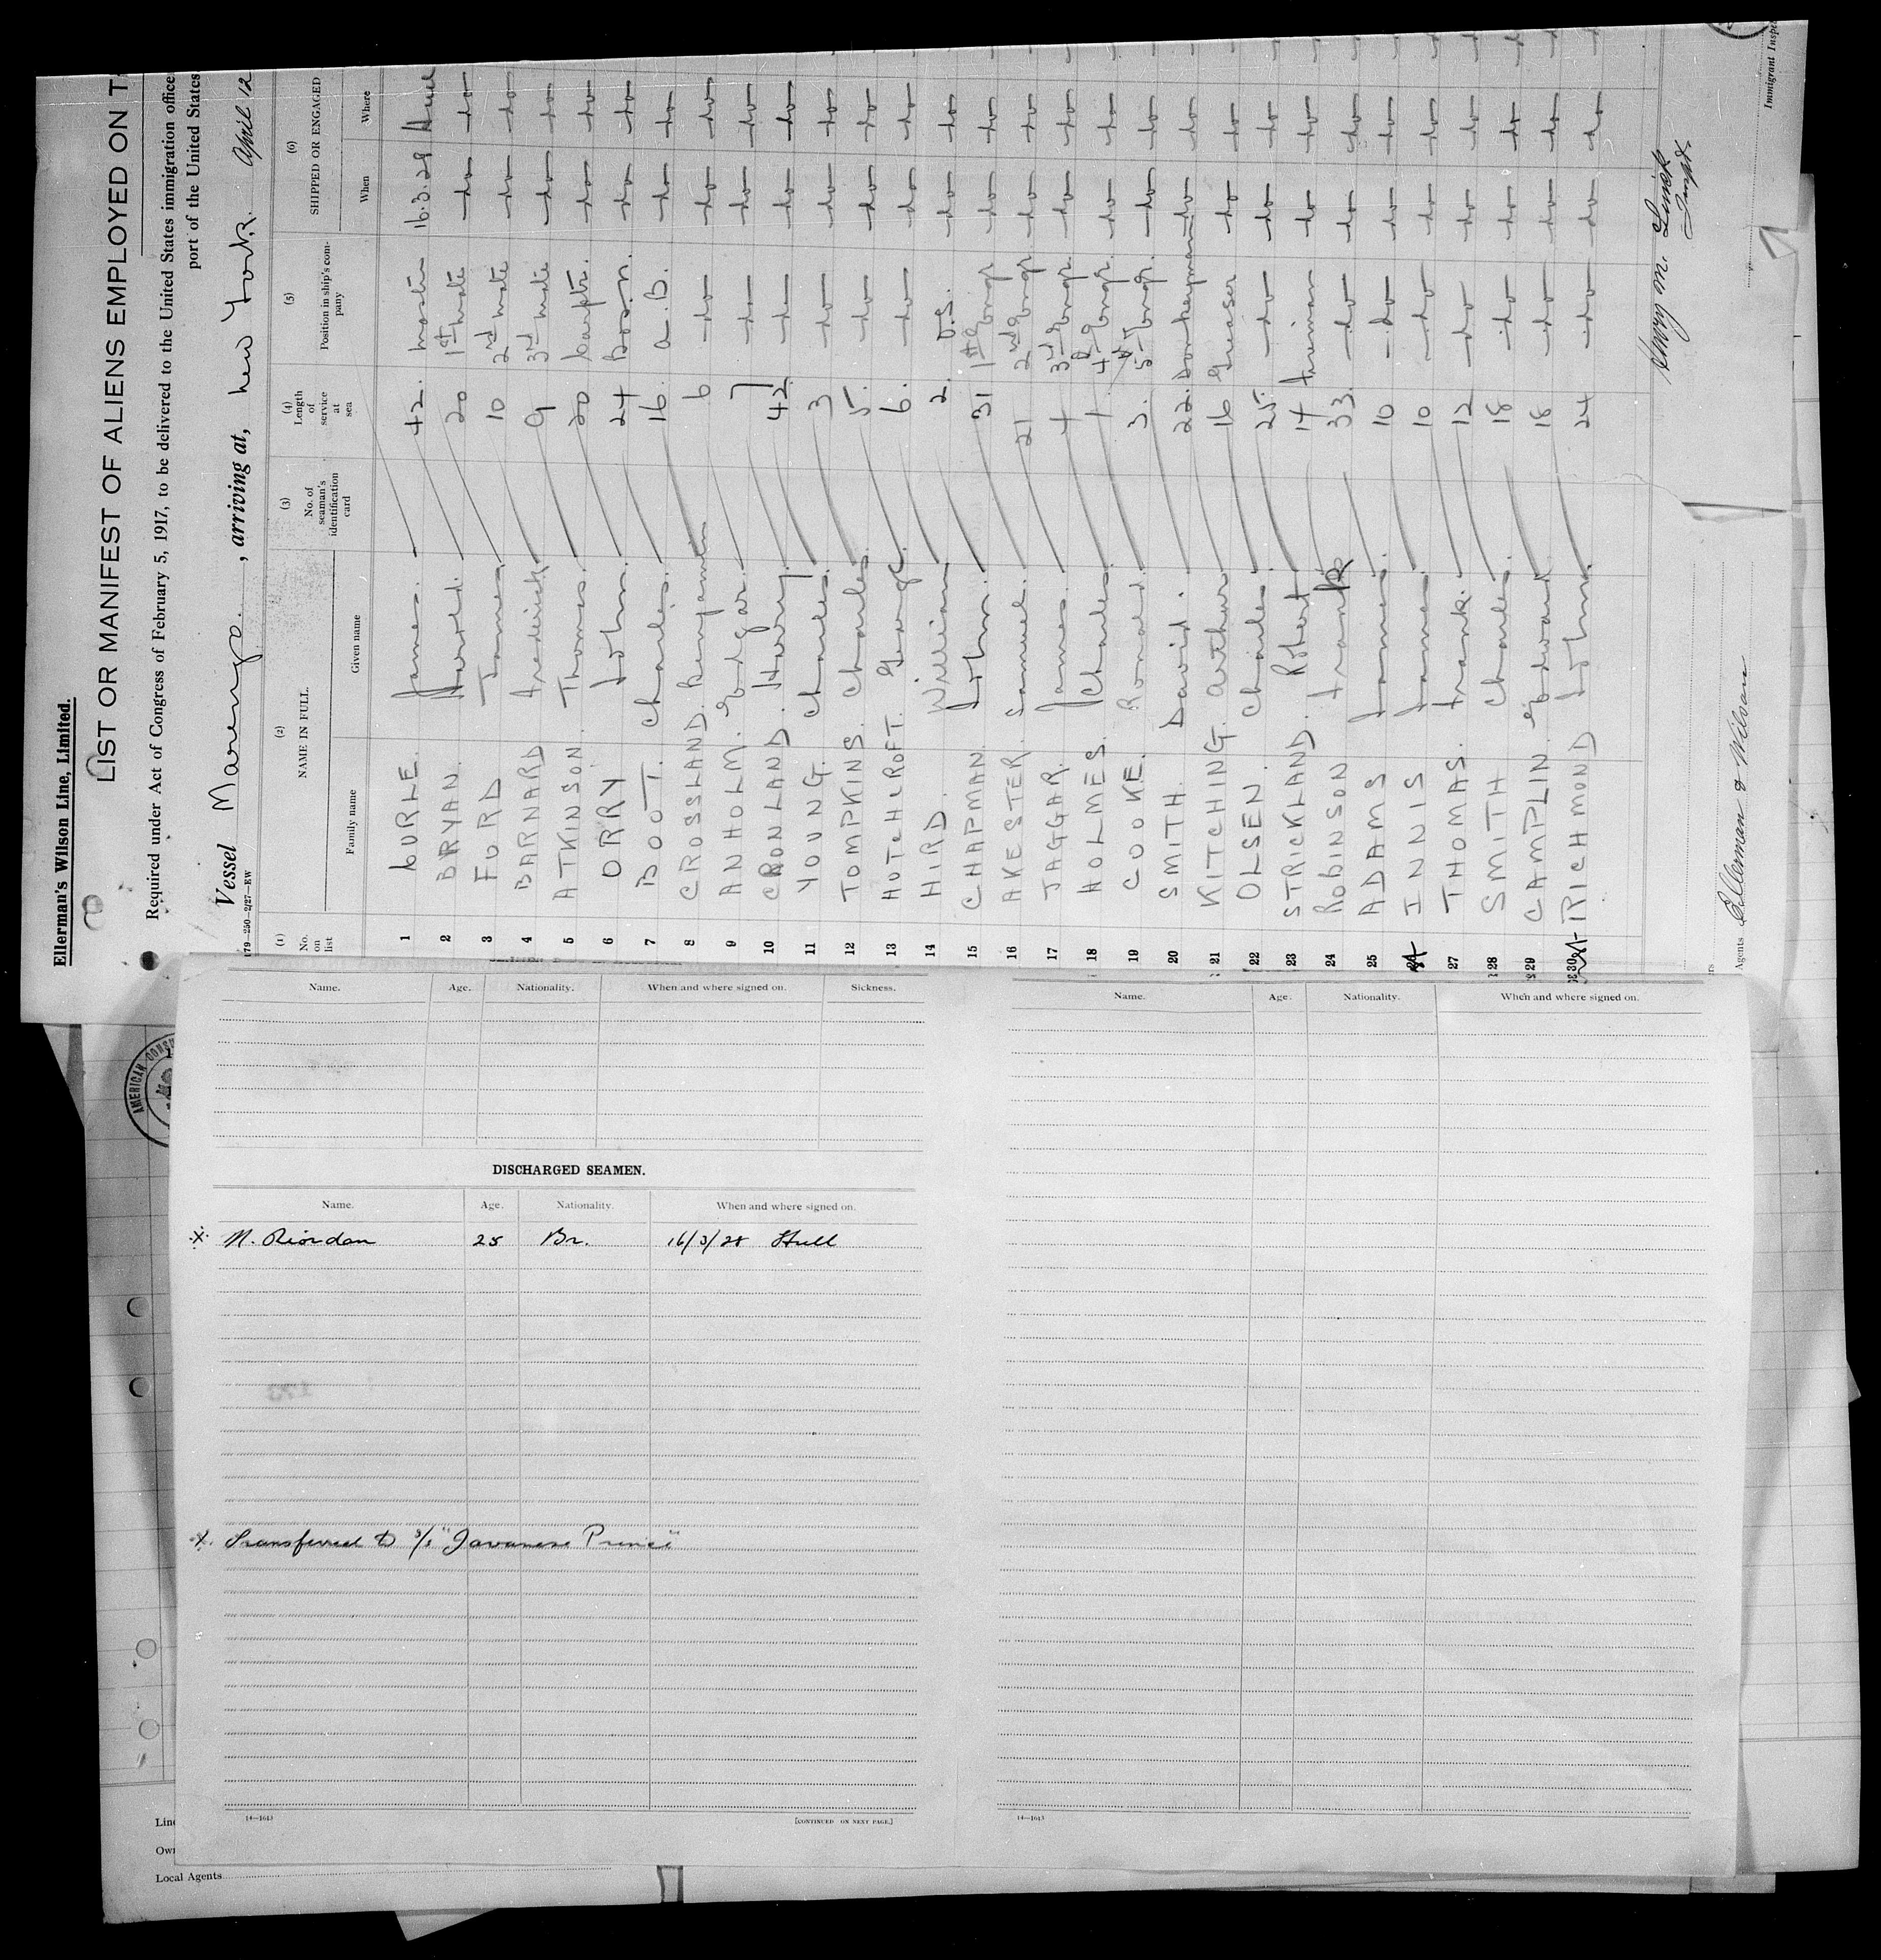 Ellerman's Wilson Line, Limited.
LIST OR MANIFEST OF ALIENS EMPLOYED ON T
Required under Act of Congress of February 5, 1917, to be delivered to the United States immigration office
port of the United States
Vessel Marengo. , arriving at, New York. April 12
179—250—2/27—EW
(1) No. on list (2) NAME IN FULL. Family name Given name (3) No. of seaman's identification card (4) Length of service at sea (5) Position in ship's company (6) SHIPPED OR ENGAGED When Where
1 James. 42. Master 16.3.28 Hull
2 BRYAN. Harred. 20 1st Mate -do- -do-
3 FORD James 10 2nd Mate -do- -do-
4 BARNARD Frederick 9 3rd Mate -do- -do-
5 ATKINSON. Thomas. 20 Carptr. -do- -do-
6 ORRY John. 24 Bosn. -do- -do-
7 BOOT. Charles. 16. A.B. -do- -do-
8 CROSSLAND. Benjamin 6 -do- -do- -do-
9 ANHOLM. Edgar. 7 -do- -do- -do-
10 CRONLAND. Harry. 42 -do- -do- -do-
11 YOUNG. Charles. 3 -do- -do- -do-
12 TOMPKINS. Charles. 5. -do- -do- -do-
13 HOTCHCROFT. George. 6. -do- -do- -do-
14 HIRD. William 2. O.S. -do- -do-
15 CHAPMAN. John. 31 1st Engr -do- -do-
16 AKESTER. Samuel. 21 2nd Engr -do- -do-
17 JAGGAR. James. 4 3rd Engr. -do- -do-
18 HOLMES. Charles. 1. 4th Engr. -do- -do-
19 COOKE. Ronald. 3. 5th Engr. -do- -do-
20 SMITH. David. 22. Donkeyman -do- -do-
21 KITCHING. Arthur 16 Greaser -do- -do-
22 OLSEN. Charles 25. -do- -do- -do-
23 STRICKLAND. Robert 14 Fireman -do- -do-
24 ROBINSON Frank 33. -do- -do- -do-
25 ADAMS James. 10 -do- -do- -do-
26 INNIS James. 10 -do- -do- -do-
27 THOMAS. Frank. 12 -do- -do- -do-
28 SMITH Charles. 18 -do- -do- -do-
29 CAMPLIN. Edward. 18 -do- -do- -do-
30 RICHMOND John. 24 -do- -do- -do-
Henry M.
Insp.
Agents Ellerman & Wilson
Immigrant Inspe
AMERICAN CONSU
Name. Age. Nationality. When and where signed on. Sickness.
DISCHARGED SEAMEN.
Name. Age. Nationality. When and where signed on.
X. M. Riordan 25 Br. 16/3/28 Hull
X. Transferred to s/s "Javanese Prince"
14—1613 [CONTINUED ON NEXT PAGE.]
Name. Age. Nationality. When and where signed on.
14—1613
Line
Own
Local Agents